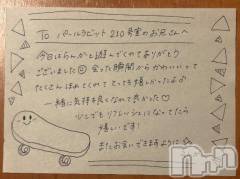 To パールラビット 210号室のお兄さんへ
今日はらんかと遊んでくれてありがとう
ございました 会った瞬間からかわいいって
たくさんほめてくれて とっても嬉しかったよ
一緒に気持ち良くなれて良かった♡
少しでもリフレッシュになってたら
嬉しいです!
またお会いできますように